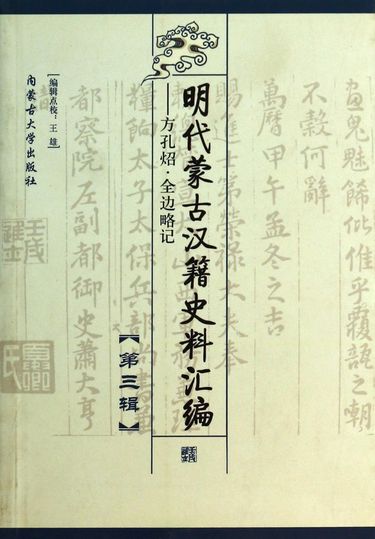 明代蒙古汉籍史料汇编
——方孔炤·全边略记
【第三辑】
〔编辑点校：王雄〕
内蒙古大学出版社
鬼魅
乎覆瓿之嘲
不穀何辭
萬曆甲午孟冬之吉
賜進士第榮祿大夫奉
糧餉太子太保兵部尚書兼
都察院左副都御史蕭大亨